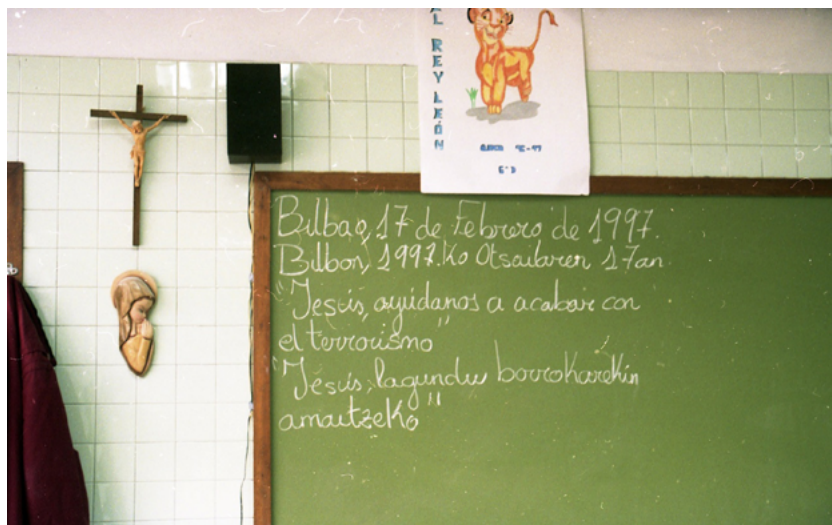 AL REY LEÓN
CURSO 96-97
6º D
Bilbao, 17 de Febrero de 1997.
Bilbon, 1997.ko Otsailaren 17an
"Jesús, ayúdanos a acabar con
el terrorismo"
"Jesús, lagundu borrokarekin
amaitzeko"